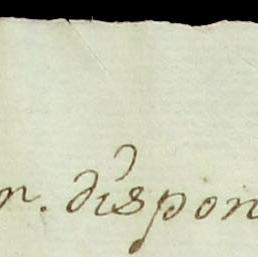 n. dispon